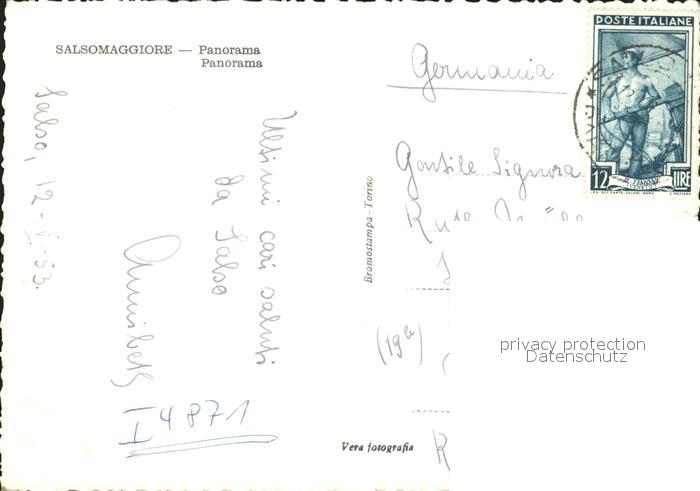 SALSOMAGGIORE — Panorama
Panorama
Salso, 12-V-53.
Ultimi cari saluti
da Salso
I4871
Bromostampa - Torino
Vera fotografia
Germania
Gentile Signora
(19
POSTE ITALIANE
IL TIMONE
12 LIRE
privacy protection
Datenschutz